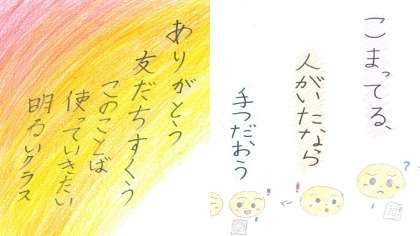 ありがとう
友だちすくう
このことば
使っていきたい
明るいクラス
こまってる、
人がいたなら
手つだおう